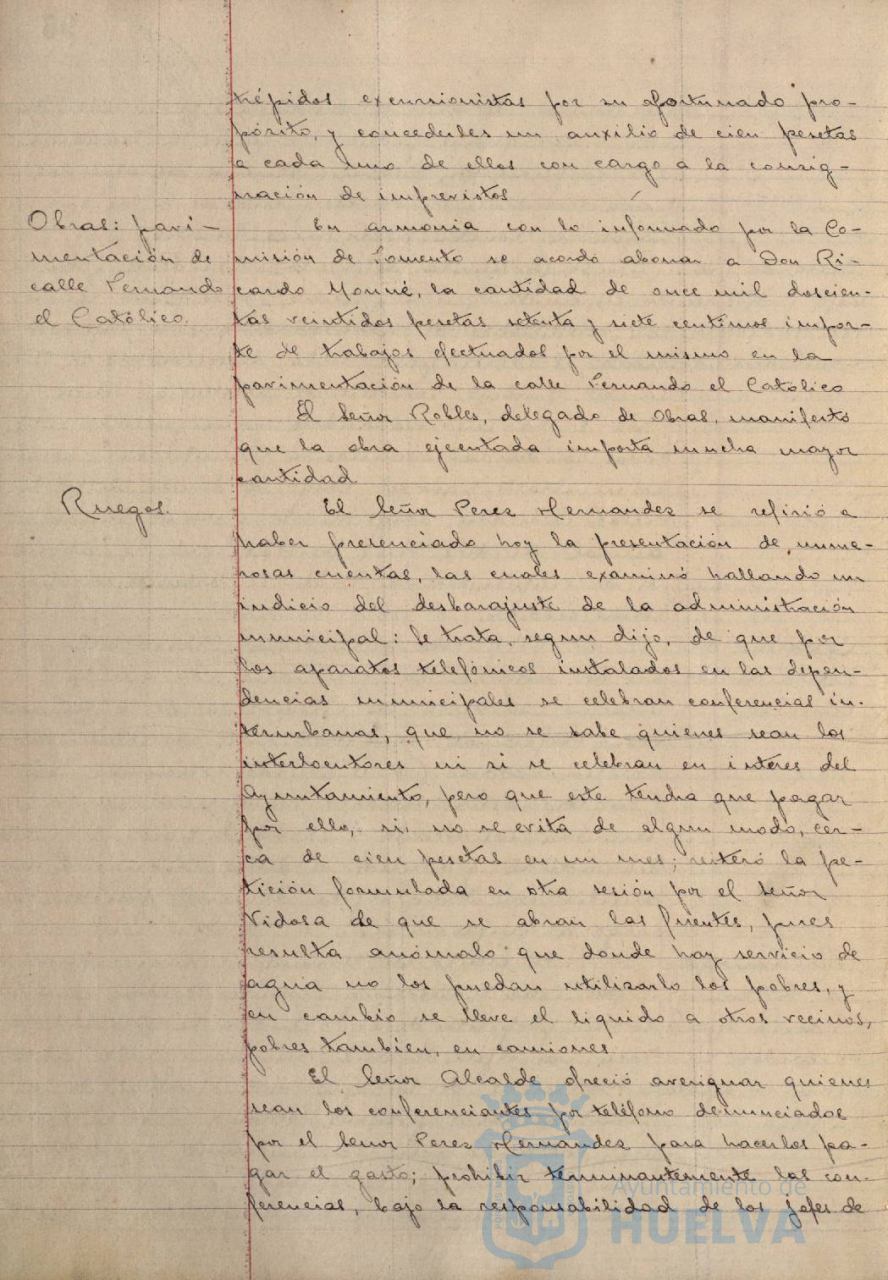 trépidos excursionistas por su afortunado pro-
pósito, y concederles un auxilio de cien pesetas
a cada uno de ellos con cargo a la consig-
nación de imprevistos
Obras: pavi-
mentación de
calle Fernando
el Católico.
En armonia con lo informado por la Co-
misión de Fomento se acordó abonar a Don Ri-
cardo Monné, la cantidad de once mil doscien-
tas veintidos pesetas setenta y siete centimos impor-
te de trabajos efectuados por el mismo en la
pavimentación de la calle Fernando el Católico
El Señor Robles, delegado de Obras, manifestó
que la obra ejecutada importa mucha mayor
cantidad
Ruegos.
El Señor Perez Hernandez se refirió a
haber presenciado hoy la presentación de nume-
rosas cuentas, las cuales examinó hallando un
indicio del desbarajuste de la administración
municipal: Se trata, segun dijo, de que por
los aparatos telefónicos instalados en las depen-
dencias municipales se celebran conferencias in-
terurbanas, que no se sabe quienes sean los
interlocutores ni si se celebran en interes del
Ayuntamiento, pero que este tendra que pagar
por ello, si, no se evita de algun modo, cer-
ca de cien pesetas en un mes; reiteró la pe-
tición formulada en otra sesión por el señor
Vidosa de que se abran las fuentes, pues
resulta anómalo que donde hay servicio de
agua no los puedan utilizarlo los pobres, y
en cambio se lleve el liquido a otros vecinos,
pobres tambien, en camiones
El Señor Alcalde ofreció averiguar quienes
sean los conferenciantes por teléfono denunciados
por el Señor Perez Hernandez para hacerlos pa-
gar el gasto; prohibir terminantemente las con-
ferencias, bajo la responsabilidad de los Jefes de
Ayuntamiento de
HUELVA